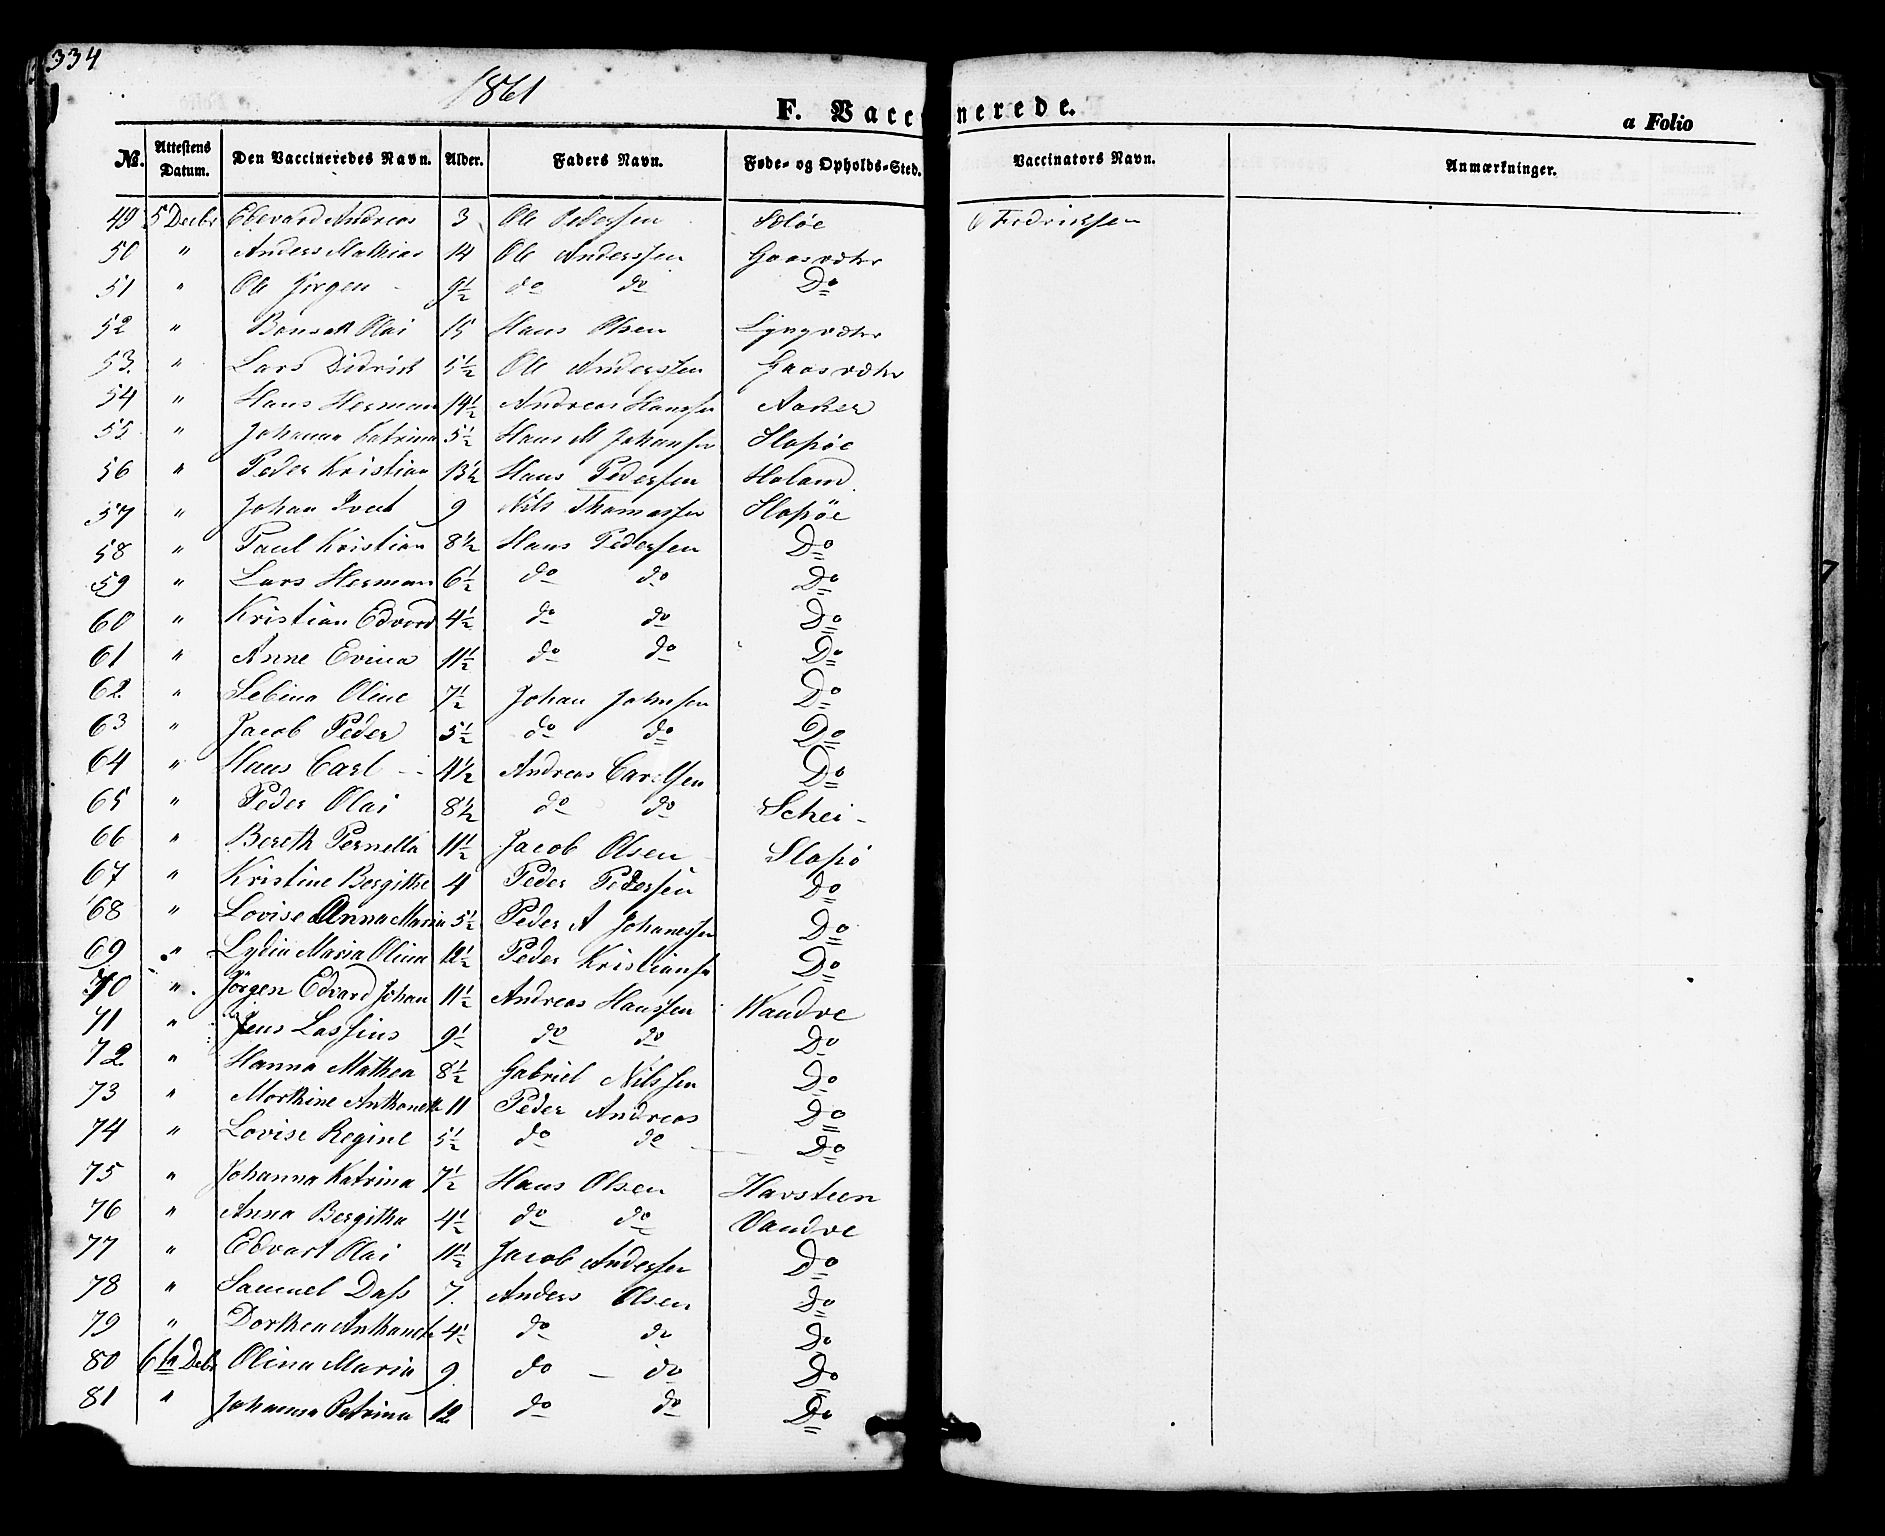 334
1861
F. Vaccinerede.
a Folio
No. Attestens Datum. Den Vaccineredes Navn. Alder. Faders Navn. Føde- og Opholds-Sted. Vaccinators Navn. Anmærkninger.
49 5 Decbr Edevard Andreas 3 Ole Pederssen Sæløe Fredriksen
50 " Anders Mathias 14 Ole Anderssen Gaasvæhr
51 " Ole Jørgen 9½ do do Do
52 " Olai 15 Hans Olsen Lyngvæhr
53. " Lars Didrick 5½ Ole Anderssen Gaasvæhr
54 " Hans Herman 14½ Andreas Hanssen Aaker
55 " Johanna Katrina 5½ Hans M Johansen Slapøe
56 " Peder Kristian 13½ Hans Pedersen Holand
57 " Johan 9 Nils Thomassen Slapöe
58 " Paul Kristian 8½ Hans Pedersen Do
59 " Lars Herman 6½ do do Do
60 " Kristian Edvard 4½ do do Do
61 " Anne Evina 11½ do do Do
62 " Sebina Oline 7½ Johan Johnsen Do
63 " Jacob Peder 5½ do do Do
64 " Hans Carl 4½ Andreas Carlsen Do
65 " Peder Olai 8½ do do Schei
66 " Bereth Pernella 11½ Jacob Olsen Slapø
67 " Kristine Bergithe 4 Peder Pedersen Do
68 " Lovise Anna Maria 5½ Peder A Johanessen Do
69 " Lydia Maria Olina 12½ Peder Kristiansen Do
70 " Jørgen Edvard Johan 11½ Andreas Hanssen Wandve
71 " Jens Lassius 9½ do do Do
72 " Hanna Mathea 8½ Gabriel Nilssen Do
73 " Morthine Anthonette 11 Peder Andreas Do
74 " Lovise Regine 5½ do do Do
75 " Johanna Katrina 7½ Hans Olsen Havsteen
76 " Anna Bergitha 4½ do do Vandve
77 " Edvart Olai 11½ Jacob Andersen Do
78 " Samuel Dass 7. Anders Olsen Do
79 " Dorthea Anthonette 4½ do do Do
80 6te Debr Olina Maria 9 do do Do
81 " Johanna Petrina 12 do do Do